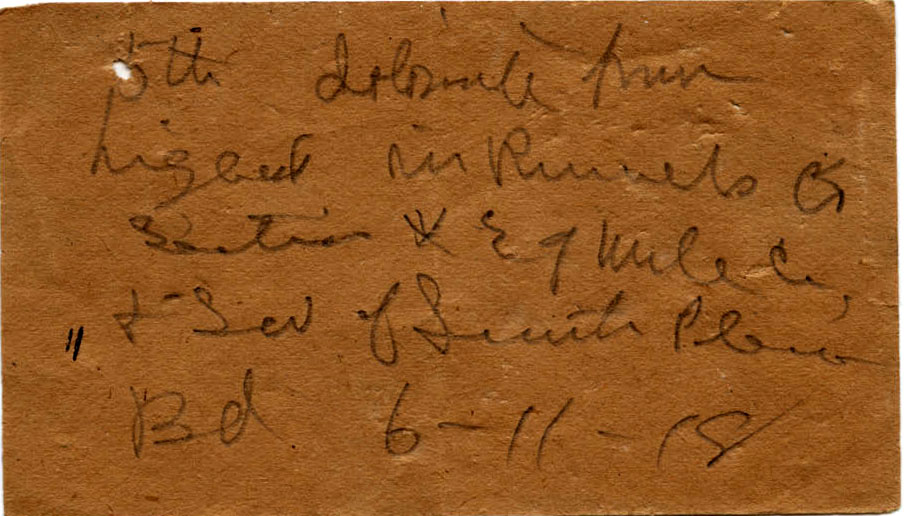 5th dolomite from
highest in Runnels Co
Section & E of Mule Co,
" + Sw of Smith Place
Bd 6-11-18